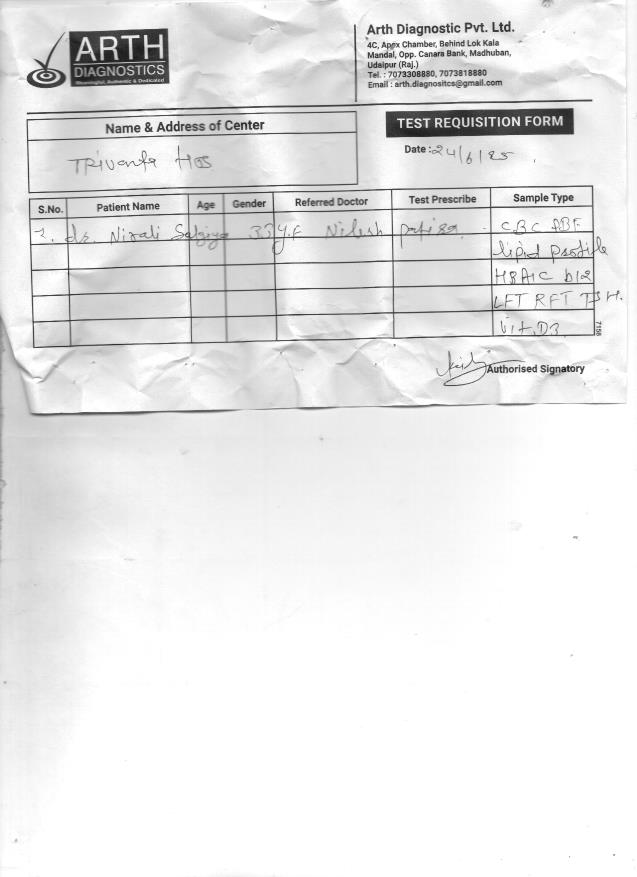 ARTH
DIAGNOSTICS
Meaningful, Authentic & Dedicated
Arth Diagnostic Pvt. Ltd.
4C, Apex Chamber, Behind Lok Kala
Mandal, Opp. Canara Bank, Madhuban,
Udaipur (Raj.)
Tel. : 7073308880, 7073818880
Email : arth.diagnositcs@gmail.com
Name & Address of Center
TEST REQUISITION FORM
Date : 24/6/25
Hos
S.No. Patient Name Age Gender Referred Doctor Test Prescribe Sample Type
dr. Nirali 33 y.f Nilesh CBC
lipid profile
HBA1C b12
LFT RFT TSH.
Vit.D3
7158
Authorised Signatory